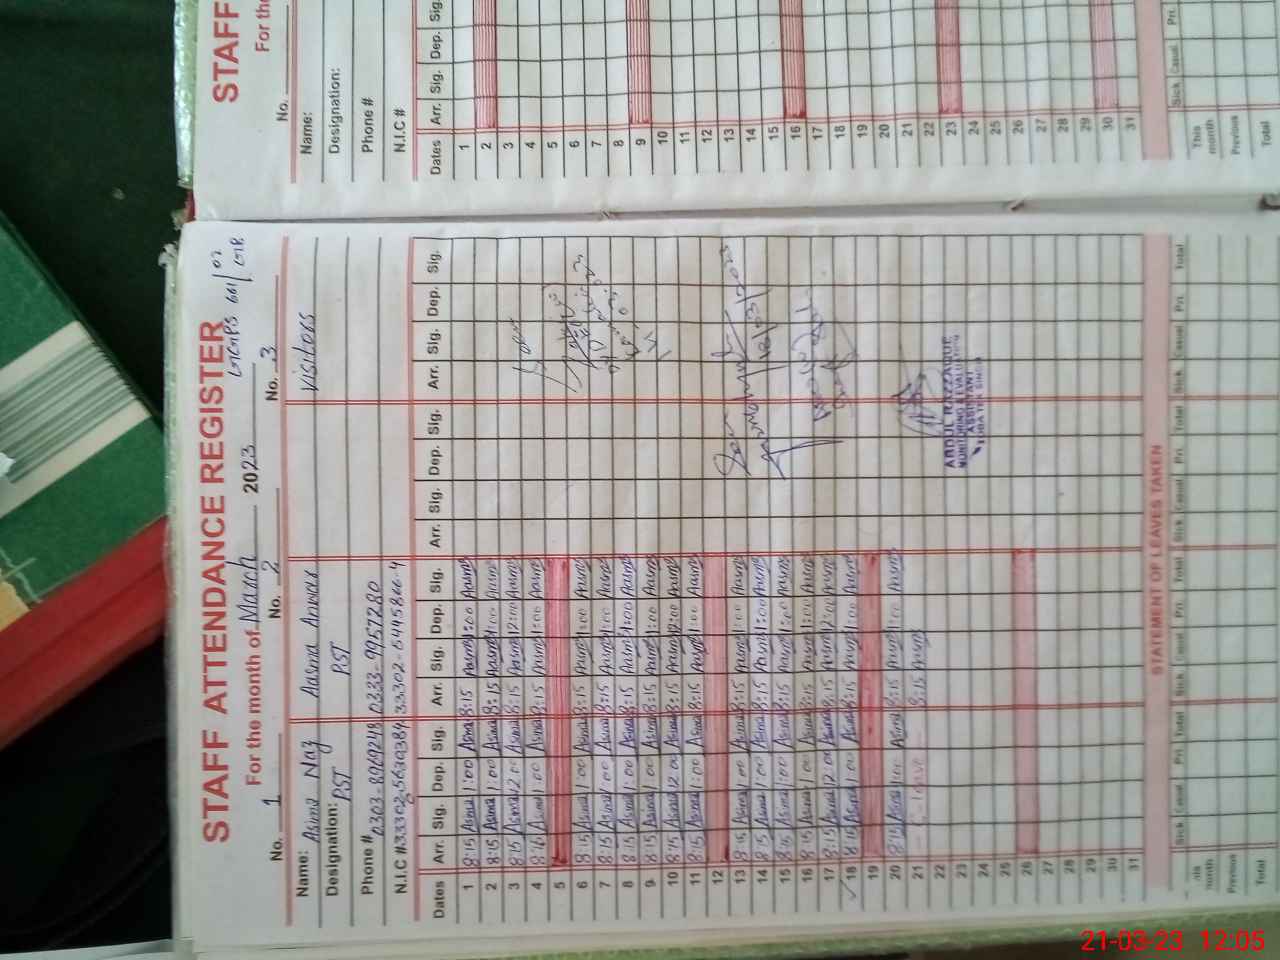 STAFF ATTENDANCE REGISTER
For the month of March 2023
No. 1 No. 2 No. 3
Name: Asima Naz Aasma Anwar Visitors
Designation: PST PST
Phone # 0303-8969248 0333-9957280
N.I.C #
Dates Arr. Sig. Dep. Sig. Arr. Sig. Dep. Sig. Arr. Sig. Dep. Sig. Arr. Sig. Dep. Sig.
1 8:15 Asima 1:00 Asima 8:15 Aasma 1:00 Aasma
2 8:15 Asima 1:00 Asima 8:15 Aasma 1:00 Aasma
3 8:15 Asima 12:00 Asima 8:15 Aasma 12:00 Aasma
4 Asima 1:00 Asima 8:15 Aasma 1:00 Aasma
5
6 8:15 Asima 1:00 Asima 8:15 Aasma 1:00 Aasma
7 8:15 Asima 1:00 Asima 8:15 Aasma 1:00 Aasma
8 8:15 Asima 1:00 Asima 8:15 Aasma 1:00 Aasma
9 8:15 Asima 1:00 Asima 8:15 Aasma 1:00 Aasma
10 8:15 Asima 12:00 Asima 8:15 Aasma 12:00 Aasma
11 8:15 Asima 1:00 Asima 8:15 Aasma 1:00 Aasma
12
13 8:15 Asima 1:00 Asima 8:15 Aasma 1:00 Aasma
14 8:15 Asima 1:00 Asima 8:15 Aasma 1:00 Aasma
15 8:15 Asima 1:00 Asima 8:15 Aasma 1:00 Aasma
16 8:15 Asima 1:00 Asima 8:15 Aasma 1:00 Aasma
17 8:15 Asima 12:00 Asima 8:15 Aasma 12:00 Aasma
18 8:15 Asima 1:00 Asima 8:15 Aasma 1:00 Aasma
19
20 8:15 Asima Asima 8:15 Aasma 1:00 Aasma
21 leave 8:15 Aasma
22
23
24
25
26
27
28
29
30
31
ABDUL RAZZAQUE
MONITORING & EVALUATING
ASSISTANT
STATEMENT OF LEAVES TAKEN
Sick Casual Pri. Total Sick Casual Pri. Total Sick Casual Pri. Total Sick Casual Pri. Total
month
Previous
Total
STAFF
For the
No.
Name:
Designation:
Phone #
N.I.C #
Dates Arr. Sig. Dep. Sig.
1
2
3
4
5
6
7
8
9
10
11
12
13
14
15
16
17
18
19
20
21
22
23
24
25
26
27
28
29
30
31
Sick Casual Pri.
This
month
Previous
Total
21-03-23 12:05